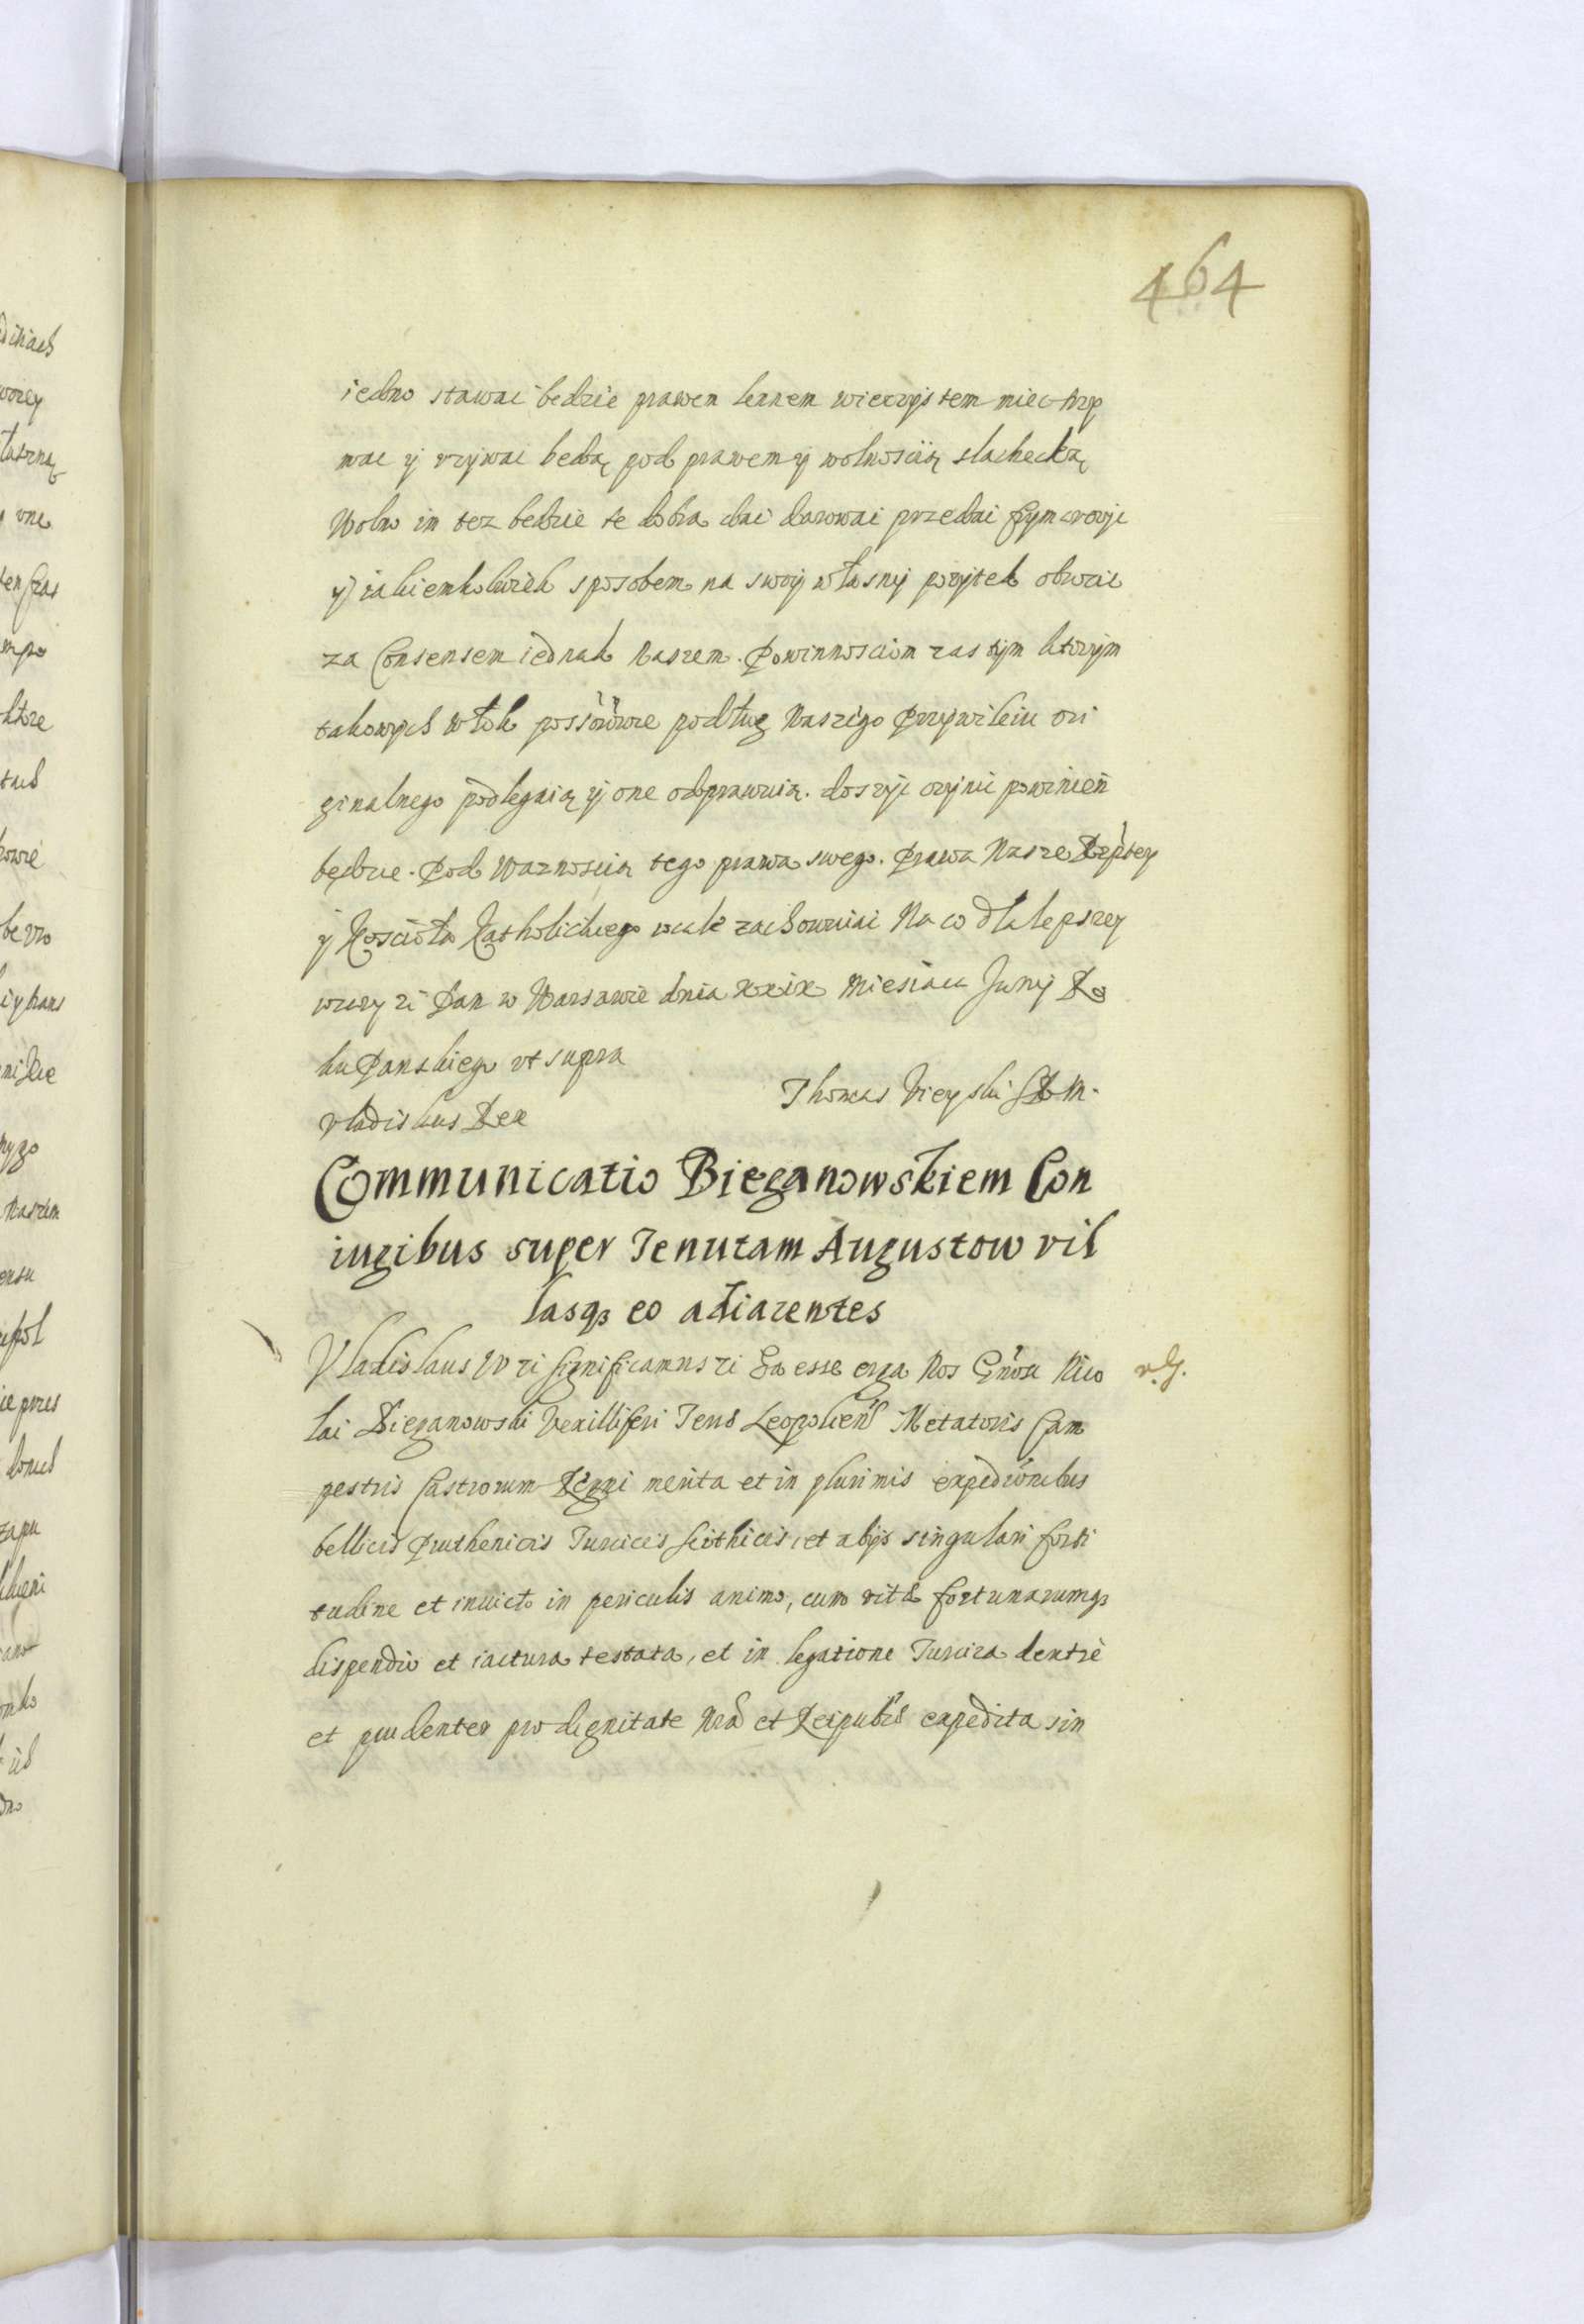 464
iedno stawac bedzie prawem lennem wieczystem miec trzy
mac y vzywac bedą pod prawem y wolnoscią slachecką
Wolno im tez bedzie te dobra dac darowac przedac frymarczyc
y iakiemkolwiek sposobem na swoy własny pozytek obrocic
za Consensem iednak Naszem. Powinnosciom zas tym ktorym
takowych włok possorowie podług Naszego Przywileiu ori
ginalnego podlegaią y one odprawuią. dosyc czynic powinien
będzie. Pod waznoscią tego prawa swego. Prawa Nasze Rzptey
y Kosciola Katholickiego wcale zachowuiac Na co dla lepszey
wiary zc Dan w Warsawie dnia xxix Miesiaca Junij Ro
ku Panskiego vt supra
Vladislaus Rex Thomas Vieyski SRM.
Communicatio Bieganowskiem Con
iugibus super Tenutam Augustow vil
lasqz eo adiacentes
Vladislaus IV zc significamus zc Ea esse erga Nos Gnosi Nico
v. G.
lai Bieganowski Vexilliferi Terrs Leopoliens Metatoris Cam
pestris Castrorum Regni merita et in plurimis expedionibus
bellicis Pruthenicis Turcicis Scithicis, et alijs singulari forti
tudine et inuicto in periculis animo, cum vitæ fortunarumqz
dispendio et iactura testata, et in legatione Turcica dextre
et prudenter pro dignitate Nra et Reipubcs expedita sin